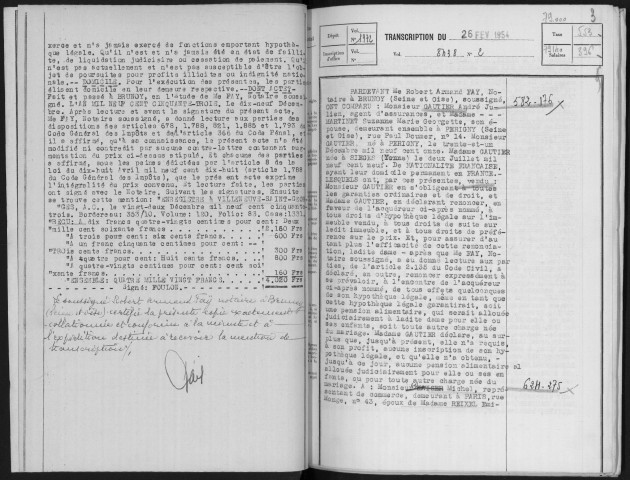 xerce et n'a jamais exercé de fonctions emportant hypothè-
que légale. Qu'il n'est et n'a jamais été en état de failli-
te, de liquidation judiciaire ou cessation de paiement. Qu'il
n'est pas actuellement et n'est pas susceptible d'être l'ob-
jet de poursuites pour profits illicites ou indignité natio-
nale.-- DOMICILE. Pour l'exécution des présentes, les parties
élisent domicile en leur demeure respective.-- DONT ACTE.-
Fait et passé à BRUNOY, en l'étude de Me FAY, Notaire soussigné.
L'AN MIL NEUF CENT CINQUANTE-TROIS, le dix-neuf Décem-
bre. Après lecture et avant la signature du présent acte,
Me FAY, Notaire soussigné, a donné lecture aux parties des
dispositions des articles 678, 1.788, 1.793 du
Code Général des Impôts et de l'article 366 du Code Pénal, et
il a affirmé, qu'à sa connaissance, le présent acte n'est
modifié ni contredit par aucune contre-lettre contenant aug-
mentation du prix ci-dessus stipulé. Et chacune des parties
a affirmé, sous les peines édictées par l'article 8 de la
loi du dix-huit Avril mil neuf cent dix-huit (article 1.788
du Code Général des Impôts), que le présent acte exprime
l'intégralité du prix convenu. Et lecture faite, les parties
ont signé avec le Notaire. Suivent les signatures. Ensuite
se trouve cette mention: "ENREGISTRE A VILLENEUVE-SAINT-GEOR-
"GES, A.C., le vingt-deux Décembre mil neuf cent cinquante
"trois. Bordereau: 333/10. Volume: 180. Folio: 83. Case: 1331.
"REÇU: A dix francs quatre-vingts centimes pour cent: Deux
"mille cent soixante francs 2.160 Frs
"A trois pour cent: six cents francs 600 Frs
"A un franc cinquante centimes pour cent: --
"Trois cents francs. 300 Frs
"A quatre pour cent: Huit cents francs 800 Frs
"A quatre-vingts centimes pour cent: cent soi
"xante francs. 160 Frs
"ENSEMBLE: QUATRE MILLE VINGT FRANCS. 4.020 Frs
"Signé: FOULON.
Je soussigné Robert Armand Fay notaire à Brunoy
certifie la présente copie exactement
collationnée et conforme à la minute et à
l'expédition destinée à recevoir la mention de
transcription.
Fay
3
Dépôt
Vol.
N° 1772
Inscription
d'office
Vol.
N°
TRANSCRIPTION DU 26 FEV 1954
Vol. 8438 N° 2
Taxe
PARDEVANT Me Robert Armand FAY, No-
taire à BRUNOY (Seine et Oise), soussigné,
ONT COMPARU : Monsieur GAUTIER André Ju-
lien, agent d'assurances, et Madame
MARTINET Suzanne Marie Georgette, son é-
pouse, demeurant ensemble à PERIGNY (Seine
et Oise), rue Paul Doumer, n° 14. Monsieur
GAUTIER, né à PERIGNY, le trente-et-un
Décembre mil neuf cent onze. Madame GAUTIER
née à (Yonne) le deux Juillet mil
neuf cent neuf. De NATIONALITE FRANCAISE,
ayant leur domicile permanent en FRANCE.-
LESQUELS ont, par ces présentes, vendu,
Monsieur GAUTIER en s'obligeant à toutes
les garanties ordinaires et de droit, et
Madame GAUTIER, en déclarant renoncer, en
faveur de l'acquéreur ci-après nommé, à
tous droits d'hypothèque légale sur l'im-
meuble vendu, à tous droits de suite sur
ledit immeuble, et à tous droits de préfé-
rence sur le prix. Et, pour assurer d'au
tant plus l'efficacité de cette renoncia-
tion, ledite dame - après que Me FAY, No-
taire soussigné, a eu donné lecture aux par
ties, de l'article 2.135 du Code Civil, a
déclaré, en outre, renoncer expressément à
se prévaloir, à l'encontre de l'acquéreur
ci-après nommé, de tous effets quelconques
de son hypothèque légale, même en tant que
cette hypothèque légale garantirait, soit
une pension alimentaire, qui serait allouée
judiciairement à ladite dame pour elle ou
ses enfants, soit toute autre charge née
du mariage. Madame GAUTIER déclare, au sur-
plus que, jusqu'à présent, elle n'a requis,
à son profit, aucune inscription de son hy-
pothèque légale, et qu'elle n'a obtenu, -
jusqu'à ce jour, aucune pension alimentaire
allouée judiciairement pour elle ou ses en-
fants, ou pour toute autre charge née du
mariage. A : Monsieur Michel, repré
sentant de commerce, demeurant à PARIS, rue
Monge, n° 43, époux de Madame REIXEL Emi-
582-126